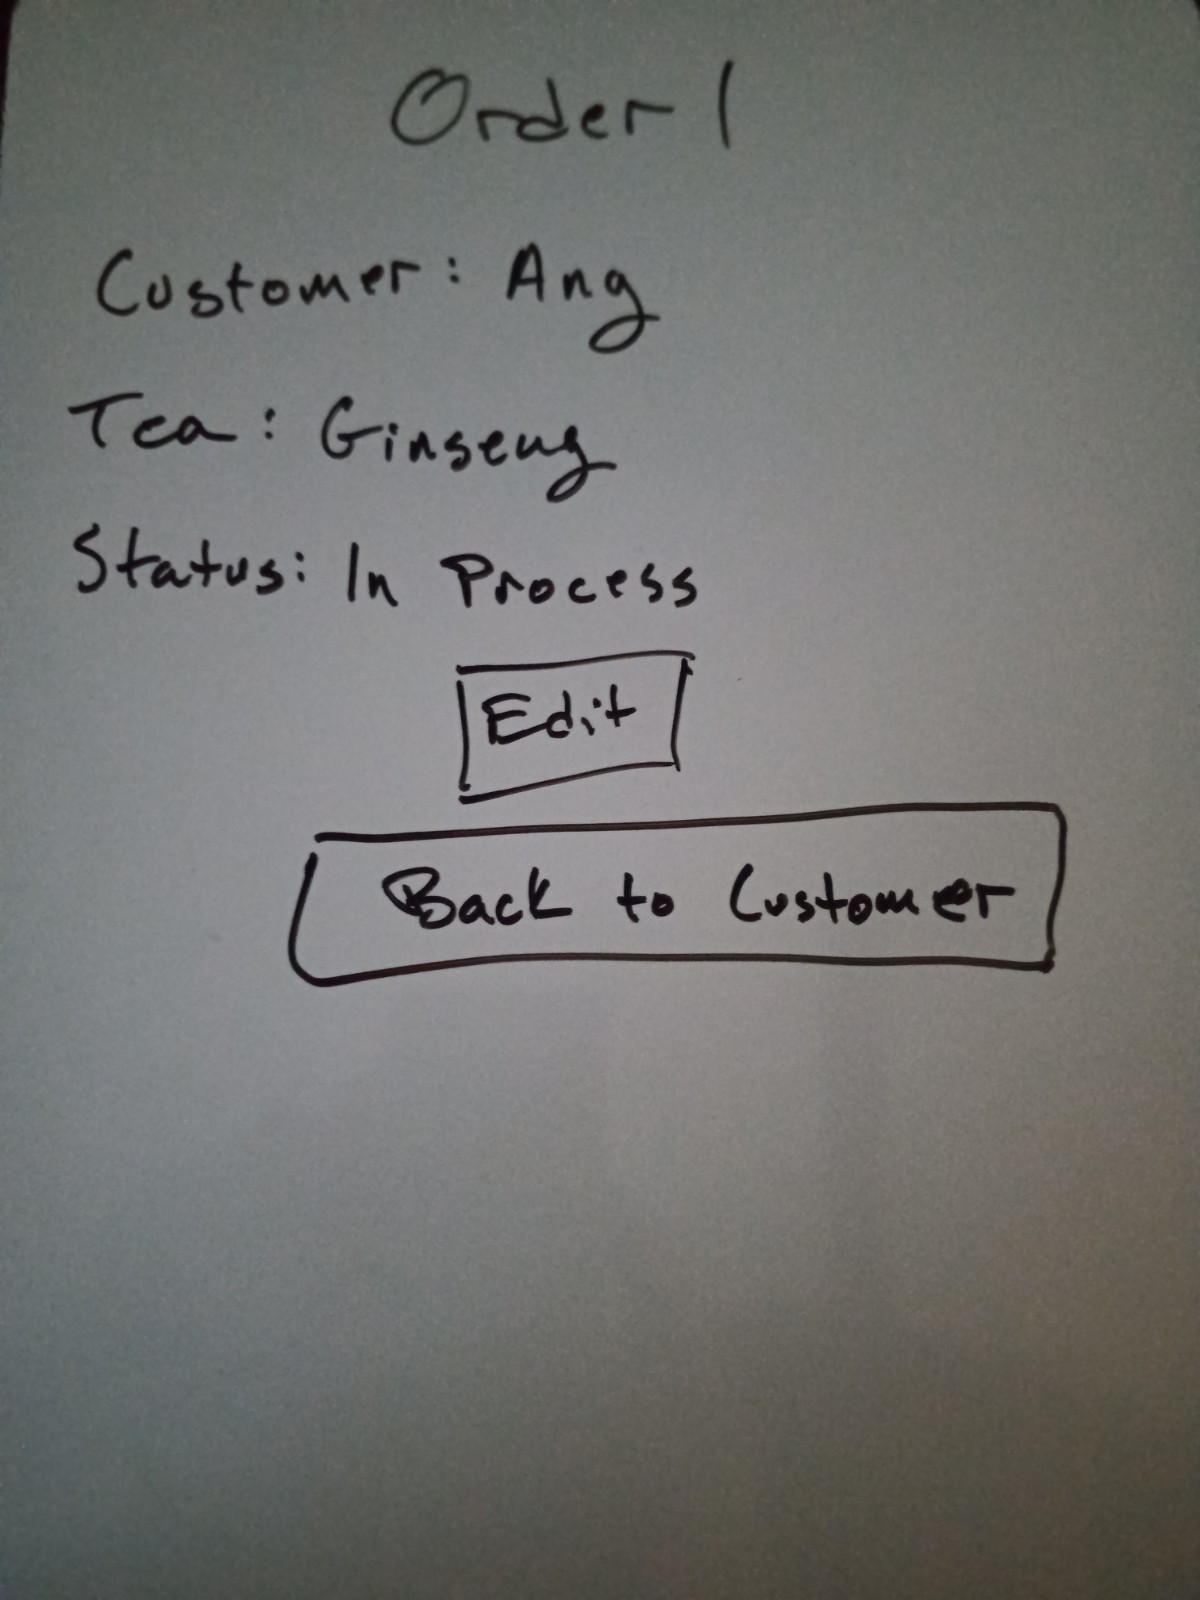 Order 1
Customer: Ang
Tea: Ginseng
Status: In Process
Edit
Back to Customer